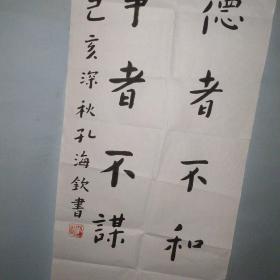 德者不和
者不謀
己亥深秋孔海欽書